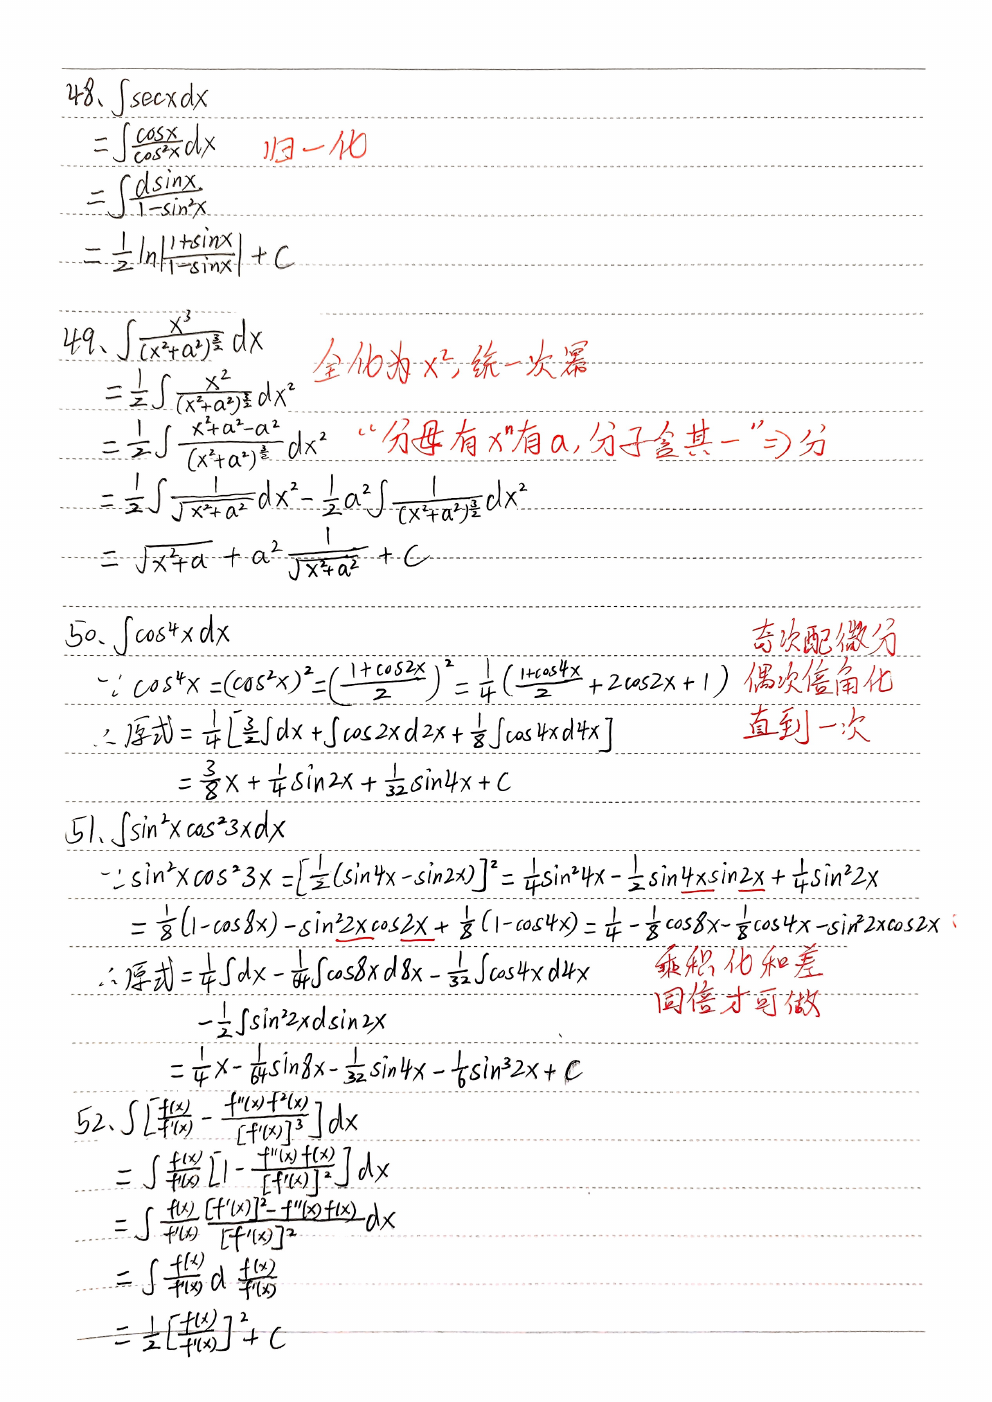 48、∫secxdx
=∫cosx/cos²x dx 归一化
=∫dsinx/1-sin²x
=1/2 ln|1+sinx/1-sinx|+C
49、∫x³/(x²+a²)^(3/2) dx
全化为x²,统一次幂
=1/2∫x²/(x²+a²)^(3/2) dx²
=1/2∫x²+a²-a²/(x²+a²)^(3/2) dx² “分母有xⁿ有a,分子含其一”⇒分
=1/2∫1/√(x²+a²) dx²-1/2a²∫1/(x²+a²)^(3/2) dx²
=√(x²+a)+a² 1/√(x²+a²)+C
50、∫cos⁴xdx 奇次配微分
∵cos⁴x=(cos²x)²=(1+cos2x/2)²=1/4(1+cos4x/2+2cos2x+1) 偶次倍角化
∴原式=1/4[3/2∫dx+∫cos2xd2x+1/8∫cos4xd4x] 直到一次
=3/8x+1/4sin2x+1/32sin4x+C
51、∫sin²xcos²3xdx
∵sin²xcos²3x=[1/2(sin4x-sin2x)]²=1/4sin²4x-1/2sin4xsin2x+1/4sin²2x
=1/8(1-cos8x)-sin²2xcos2x+1/8(1-cos4x)=1/4-1/8cos8x-1/8cos4x-sin²2xcos2x
∴原式=1/4∫dx-1/64∫cos8xd8x-1/32∫cos4xd4x 乘积化和差
同倍才可做
-1/2∫sin²2xdsin2x
=1/4x-1/64sin8x-1/32sin4x-1/6sin³2x+C
52、∫[f(x)/f'(x)-f''(x)f²(x)/[f'(x)]³]dx
=∫f(x)/f'(x)[1-f''(x)f(x)/[f'(x)]²]dx
=∫f(x)/f'(x) [f'(x)]²-f''(x)f(x)/[f'(x)]² dx
=∫f(x)/f'(x) d f(x)/f'(x)
=1/2[f(x)/f'(x)]²+C